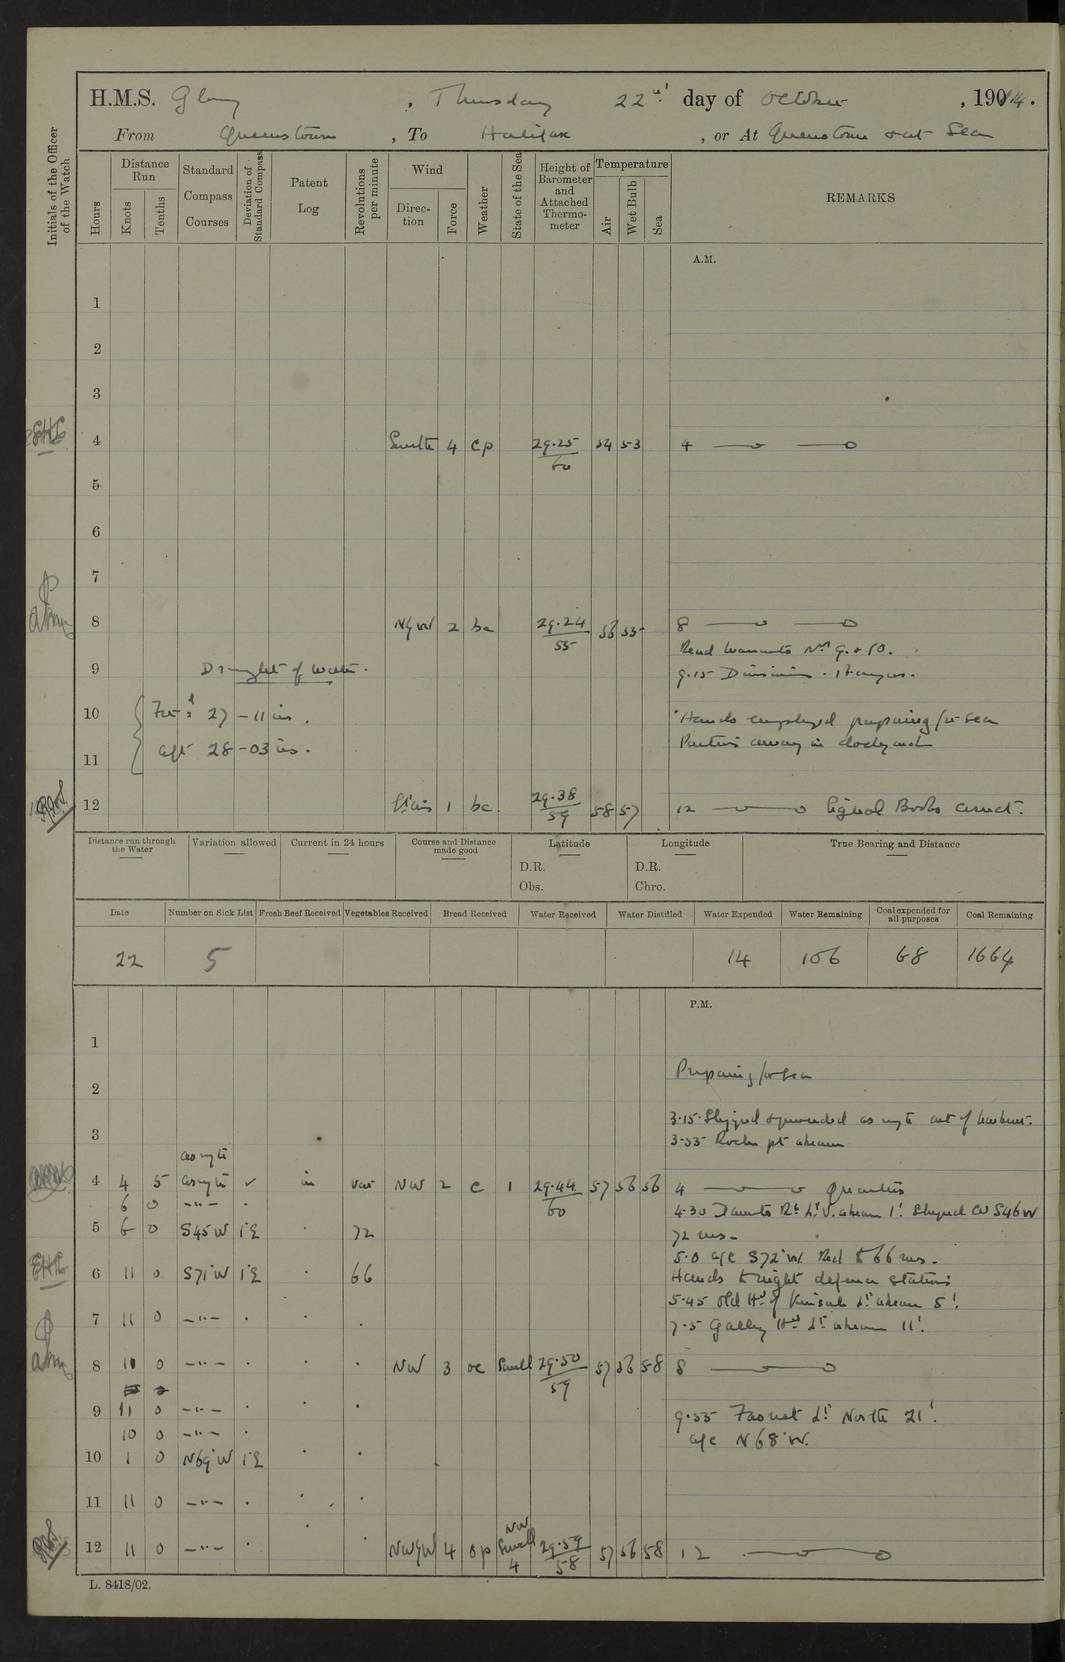 H.M.S. Glory , Thursday 22nd day of October , 190 1914.
From Queenstown , To Halifax , or At Queenstown & at Sea
Initials of the Officer of the Watch
Hours
Distance Run
Knots
Tenths
Standard Compass Courses
Deviation of Standard Compass
Patent Log
Revolutions per minute
Wind
Direction
Force
Weather
State of the Sea
Height of Barometer and Attached Thermometer
Temperature
Air
Wet Bulb
Sea
REMARKS
A.M.
1
2
3
4 South 4 cp 29.25 60 54 53 4
5
6
7
8 NyW 2 bc 29.24 55 56 55 8
Read Warrants Nos 9 & 10.
9 Draught of water. 9.15 Divisions. Prayers.
10 For'd 27 - 11 ins. Hands employed preparing for sea
aft 28 - 03 ins. Parties away in dockyard
11
12 1 bc 29.38 59 58 57 12 Signal Books correct.
Distance run through the Water
Variation allowed
Current in 24 hours
Course and Distance made good
Latitude
D.R.
Obs.
Longitude
D.R.
Chro.
True Bearing and Distance
Date Number on Sick List Fresh Beef Received Vegetables Received Bread Received Water Received Water Distilled Water Expended Water Remaining Coal expended for all purposes Coal Remaining
22 5 14 106 68 1664
P.M.
1
Preparing for sea
2
3.15 Slipped & proceeded as reqte out of harbour.
3 3.53 Roches pt abeam
as reqte
4 4 5 as reqte in var NW 2 c 1 29.44 60 57 56 56 4 Quarters
6 0 -"- 4.30 Daunts Rk Lt V. abeam 1'. Shaped Co S46W
5 6 0 S45W 1°E 72 72 revs.
5.0 a/c S72°W. Red to 66 revs.
6 11 0 S71°W 1°E 66 Hands to night defence stations
5.45 Old Hd of Kinsale Lt abeam 5'.
7 11 0 -"- 7.5 Galley Hd Lt abeam 11'.
8 10 0 -"- NW 3 oc Swell 29.50 59 57 56 58 8
9 11 0 -"- 9.55 Fasnet Lt North 21'.
10 0 -"- a/c N68°W.
10 1 0 N69°W 1°E
11 11 0 -"-
12 11 0 -"- NWyW 4 op NW Swell 4 29.59 58 57 56 58 12
L. 8418/02.